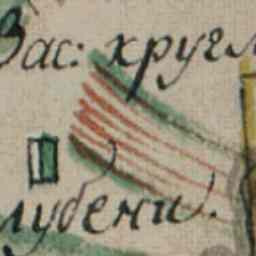 Вас: кругл
лубени.